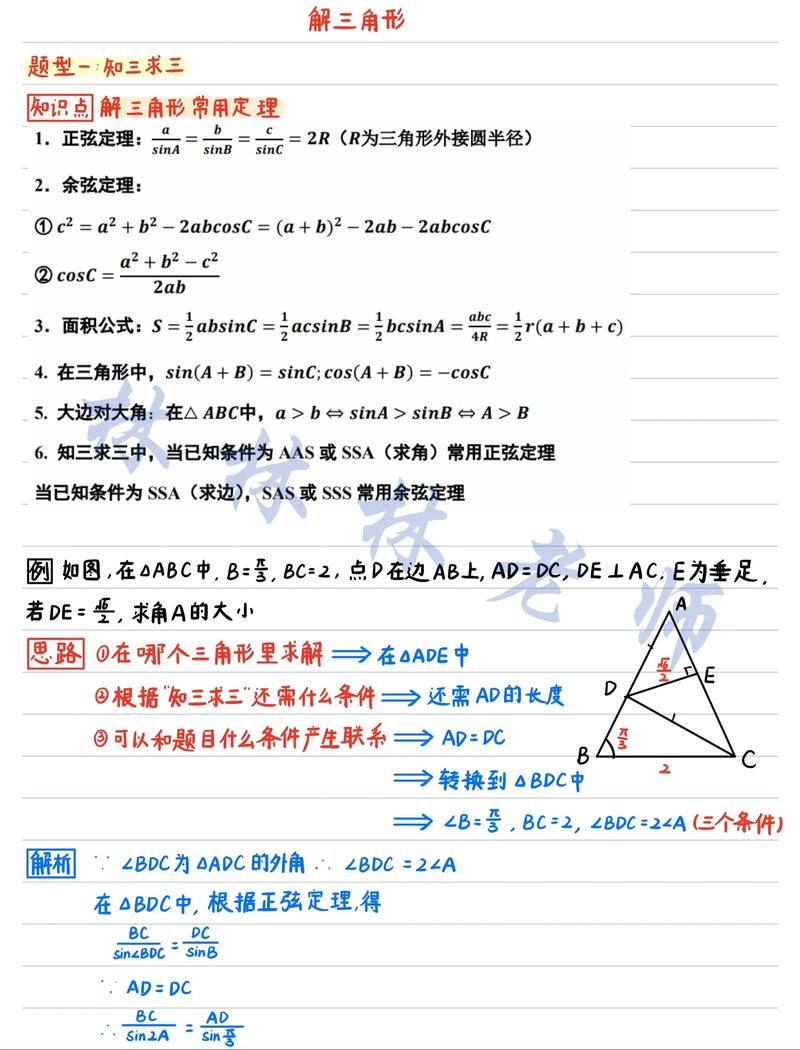 解三角形
题型一:知三求三
知识点 解三角形常用定理
1. 正弦定理：a/sinA = b/sinB = c/sinC = 2R（R为三角形外接圆半径）
2. 余弦定理：
① c² = a² + b² − 2abcosC = (a + b)² − 2ab − 2abcosC
② cosC = (a² + b² − c²)/2ab
3. 面积公式：S = 1/2 absinC = 1/2 acsinB = 1/2 bcsinA = abc/4R = 1/2 r(a + b + c)
4. 在三角形中，sin(A + B) = sinC; cos(A + B) = −cosC
5. 大边对大角：在△ ABC中，a > b ⇔ sinA > sinB ⇔ A > B
6. 知三求三中，当已知条件为 AAS 或 SSA（求角）常用正弦定理
当已知条件为 SSA（求边），SAS 或 SSS 常用余弦定理
林林林老师
例 如图,在△ABC中, B=π/3, BC=2, 点D在边AB上, AD=DC, DE⊥AC, E为垂足,
若DE=√6/2, 求角A的大小
思路 ①在哪个三角形里求解 ⟹ 在△ADE中
②根据"知三求三"还需什么条件 ⟹ 还需AD的长度
③可以和题目什么条件产生联系 ⟹ AD=DC
⟹ 转换到△BDC中
⟹ ∠B=π/3, BC=2, ∠BDC=2∠A (三个条件)
A
√6/2
E
D
π/3
B
C
2
解析 ∵ ∠BDC为△ADC的外角 ∴ ∠BDC=2∠A
在△BDC中, 根据正弦定理,得
BC/sin∠BDC = DC/sinB
∵ AD=DC
∴ BC/sin2A = AD/sin π/3